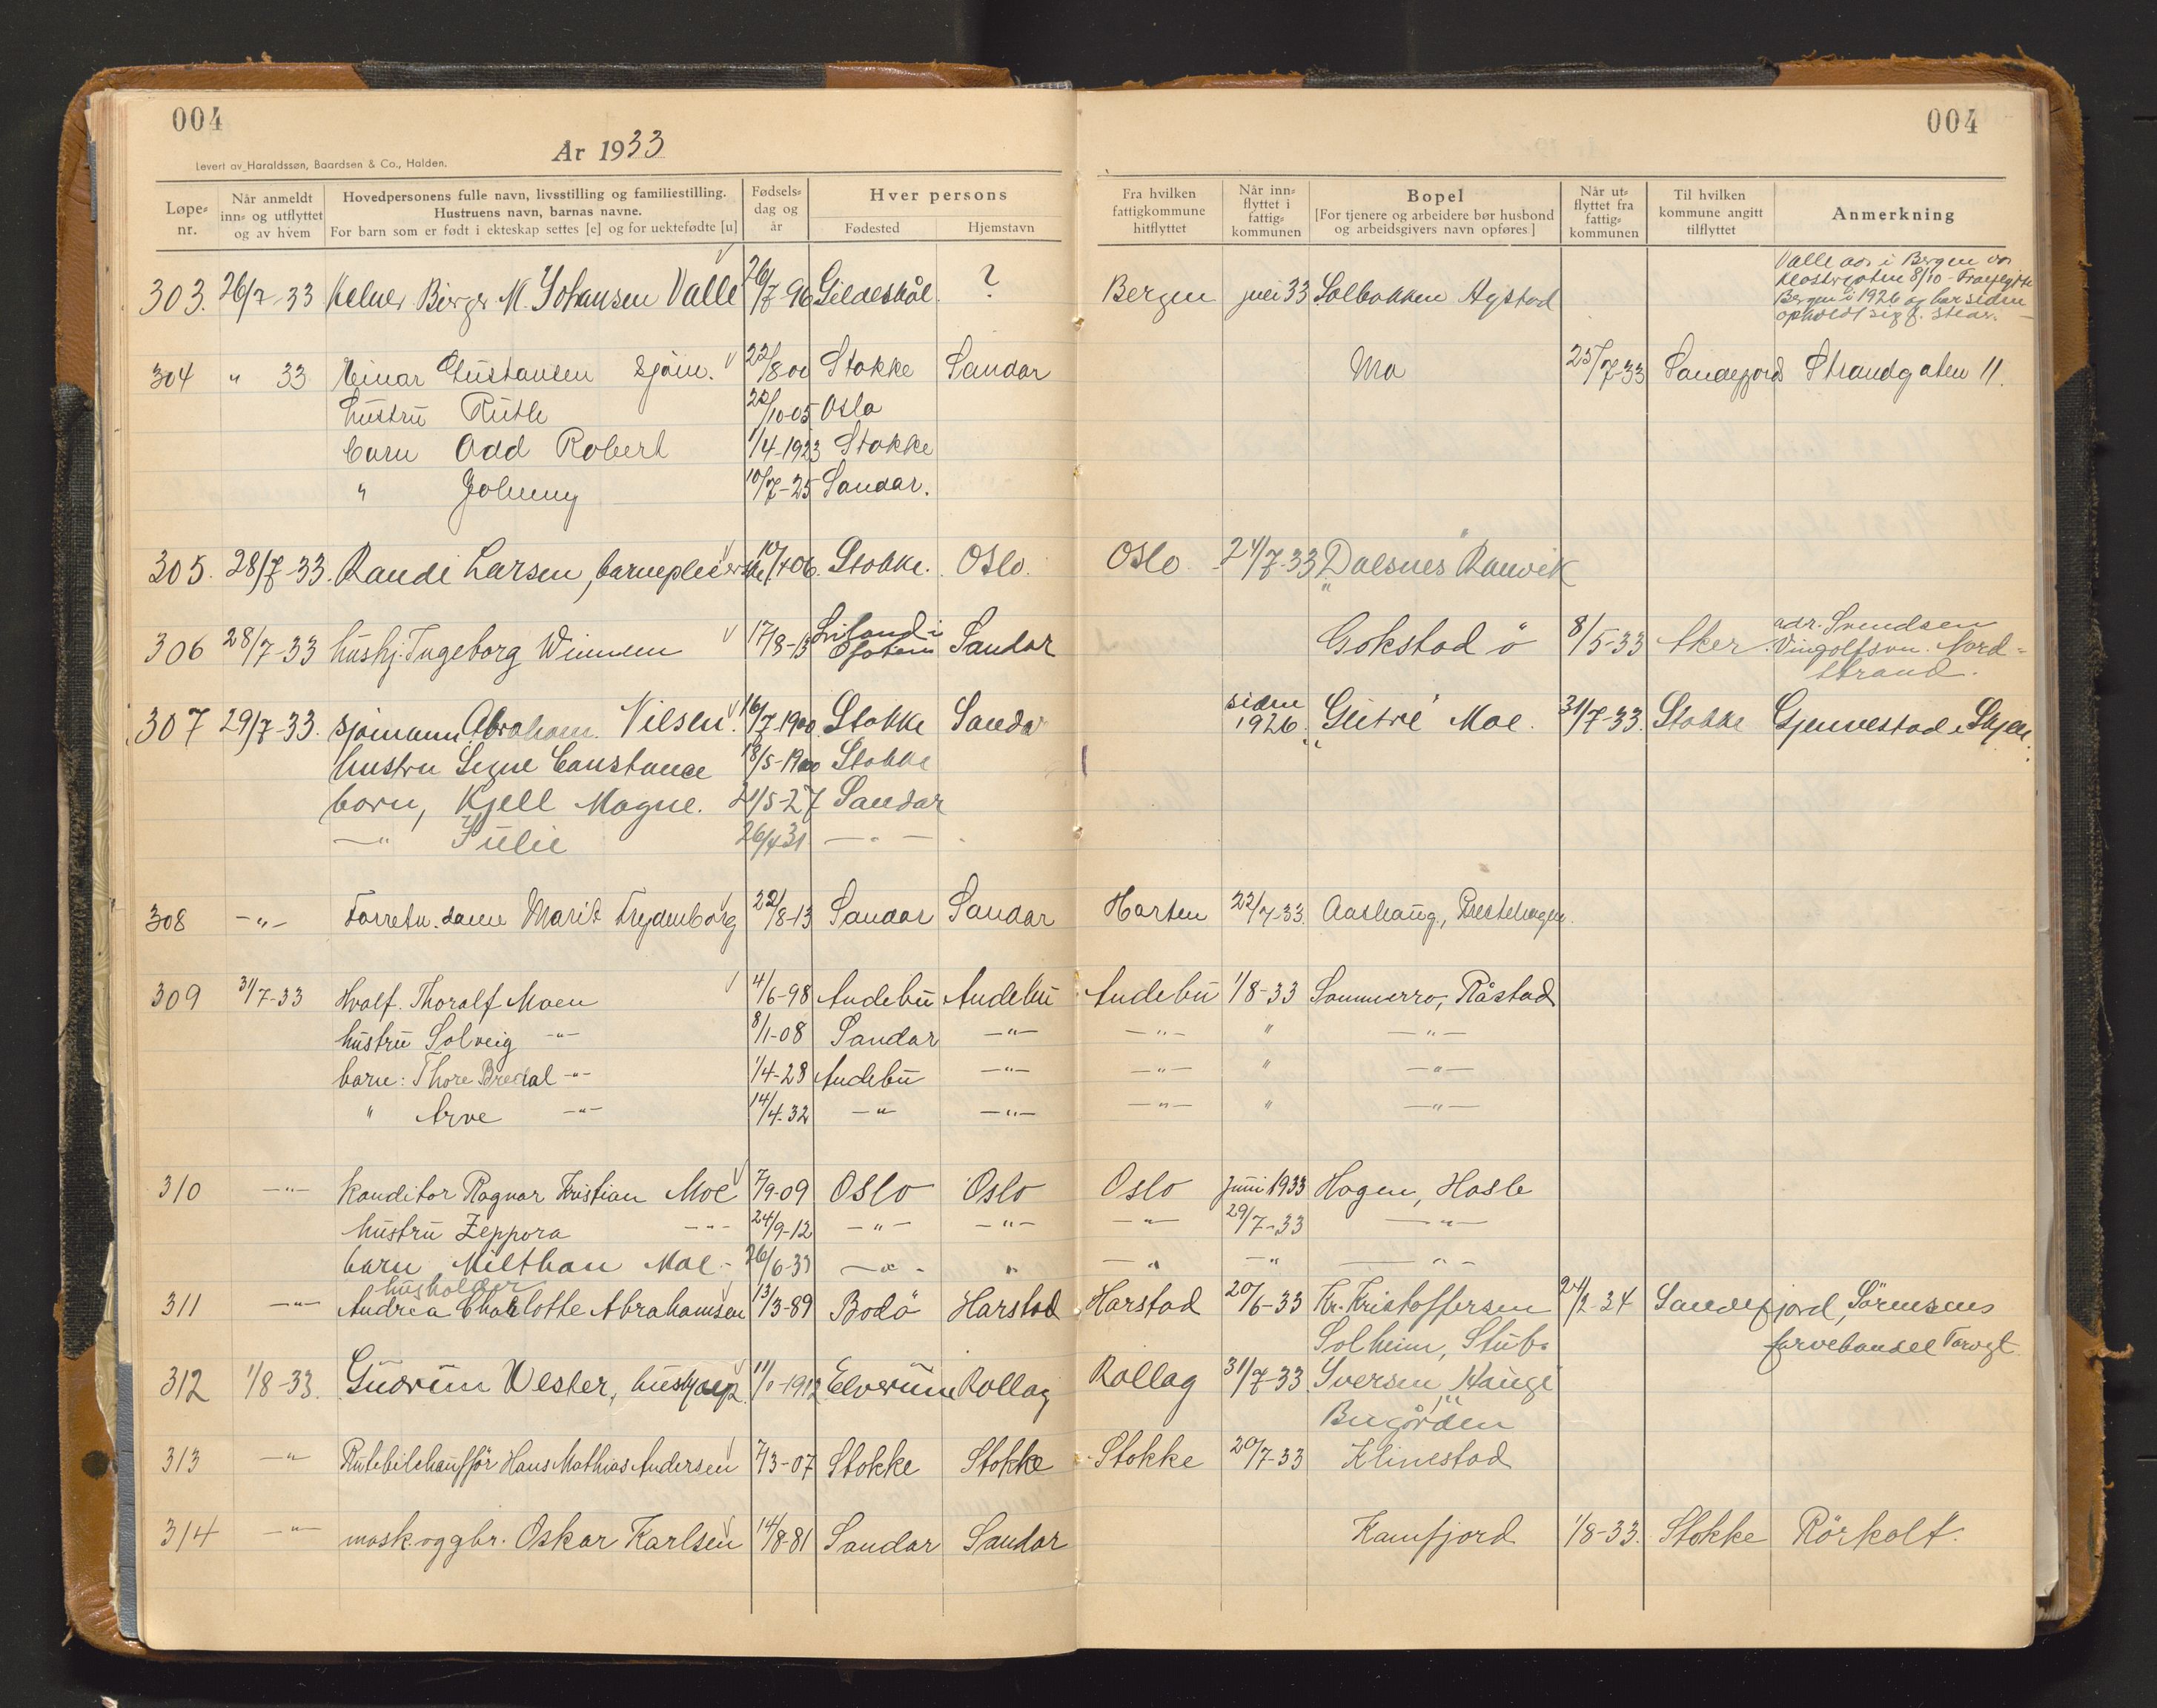 004
004
År 1933
Levert av Haraldssøn, Baardsen & Co., Halden.
Løpe-nr. Når anmeldt inn- og utflyttet og av hvem Hovedpersonens fulle navn, livsstilling og familiestilling. Hustruens navn, barnas navne. For barn som er født i ekteskap settes [e] og for uektefødte [u] Fødsels-dag og år Hver persons Fødested Hjemstavn Fra hvilken fattigkommune hitflyttet Når inn-flyttet i fattig-kommunen Bopel [For tjenere og arbeidere bør husbond og arbeidsgivers navn opføres] Når ut-flyttet fra fattig-kommunen Til hvilken kommune angitt tilflyttet Anmerkning
303. 26/7-33 Kelner Birger M. Johansen Valle 26/7-96 Gildeskål. ? Bergen juli 33 Solbakken Nystad Valle adr. i Bergen var
Klostergaten 8/10 - Fraflyttet
Bergen i 1926 og har siden
opholdt sig f. sted.
304 " 33 Einar Gustavsen sjøm. 22/8 00 Stokke Sandar Mo 25/7-33 Sandefjord Strandgaten 11.
hustru Ruth 20/10-05 Oslo
barn Odd Robert 1/4-1923 Stokke
" Johnny 10/7-25 Sandar.
305. 28/7-33. Randi Larsen, barnepleierske 10/4 06. Stokke. Oslo. Oslo 24/7-33 "Dalsnes" Ranvik
306 28/7-33 hushj. Ingeborg Winnem 17/8-13 Sandar Gokstad ö 8/5-33 Aker adr. Svendsen
Vingolfsvn. Nord-
strand.
307 29/7-33. sjømann Abraham Nilsen 16/7-1900 Stokke Sandar siden 1926. "Glitre" Moe. 31/7-33. Stokke Gjennestad i Skjee.
hustru Signe Constance 18/5-1900 Stokke
barn, Kjell Magne. 21/5-27 Sandar
—"— Julie 26/4 31 — " —
308 —"— Forretn. dame Marit Frydenborg 22/8-13 Sandar Sandar Horten 22/7-33. Aashaug, Prestehagen.
309 31/7-33 Hvalf. Thoralf Moen 4/6-98 Andebu Andebu Andebu 1/8-33 Sommerro, Råstad
hustru Solveig —"— 8/1-08 Sandar —"— —"— " —"—
barn: Thore Bredal —"— 1/4-28 Andebu —"— —"— " —"—
" Arve —"— 14/4-32 —"— —"— —"— " —"—
310 —"— Konditor Ragnar Kristian Moe 7/9-09 Oslo Oslo Oslo Juni 1933 Hagen, Hasle
hustru Zeppora —"— 24/9-12 —"— —"— —"— 29/7-33 —"—
barn Milthan Moe - 26/6-33 —"— " —"— —"— —"—
husholder
311 —"— Andrea Charlotte Abrahamsen 13/3-89 Bodö Harstad Harstad 20/6-33 Kr. Kristoffersen 24/2-34 Sandefjord, Sörensens
Solheim, Stub. farvehandel Torvgt.
312 1/8-33. Gudrun Vester, hushjelp. 11/1-1912 Elverum Rollag Rollag 31/7-33 Iversen, Haugi
Bugården
313 —"— Rutebilchaufför Hans Mathias Andersen 7/3-07 Stokke Stokke Stokke 20/7-33 Klinestad
314 —"— mask. og gbr. Oskar Karlsen 14/8-81 Sandar Sandar Kamfjord 1/8-33. Stokke Rörkolt.